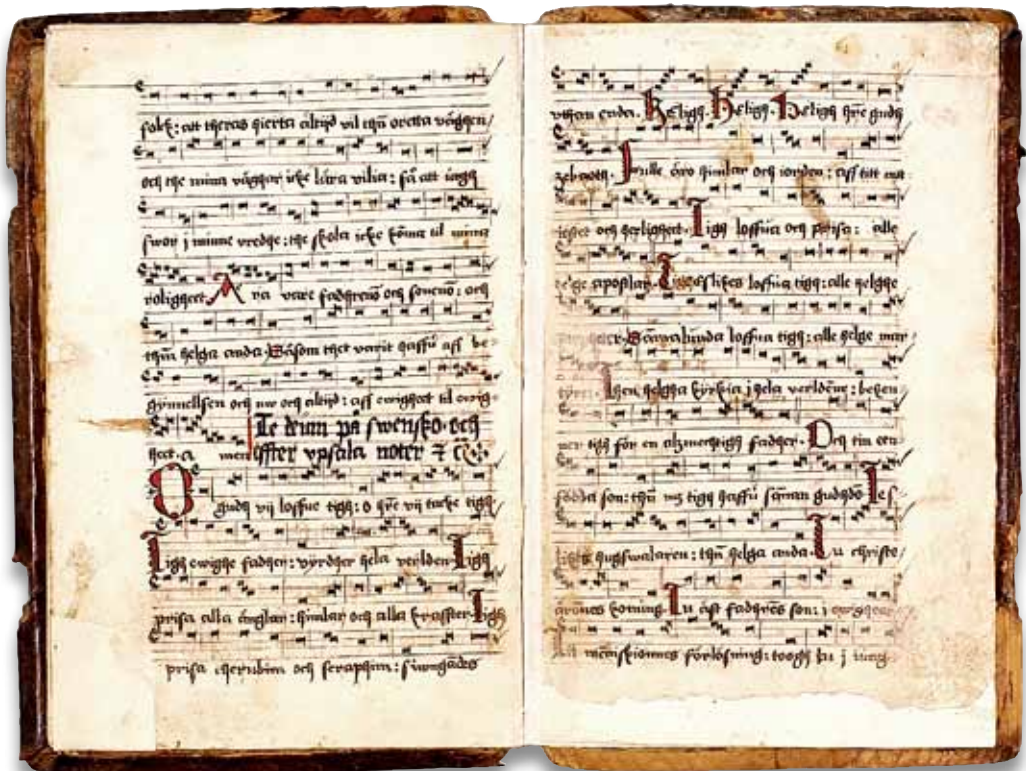 folk: att theras hierta altijd vil thñ oretta väghen
och the mina väghar icke lära vilia: så att iagh
swor j minne vredhe: the skola icke koma til mina
roligheet Ara vare fadhrenō och sonenō: och
thñ helga anda. Såsom thet varit haffu aff be-
gynnellsen och nw och altijd: aff ewigheet til ewig-
heet. a men
Te deum på swensko. och
effter vpsala noter
O gudh vij loffue tigh: o hre vij tacke tigh
Tigh ewighe fadhen: vyrdher hela verlden Tigh
prisa alla änglar: himlar och alla kraffter Tigh
prisa cherubim och seraphim: siwngādes
vthan enda. Heligh. Heligh. Heligh hre gudh
zebaoth. Fulle äro himlar och iorden: aff titt
och herligheet. Tigh loffua och prisa: alle
apostlar. loffua tigh: alle helghe
Sāmalunda loffua tigh: alle helge mar
Then helgha kyrkia j hela verldēne: beken
ner tigh för en alzmechtigh fadher. Och tin een
födda son: thñ mz tigh haffu sāman gudhdō
hugswalaren: thñ helga anda. Tu christe
ärones konung. Tu äst fadhrēs son: j
menniskionnes förlosning: toogh tu j iung